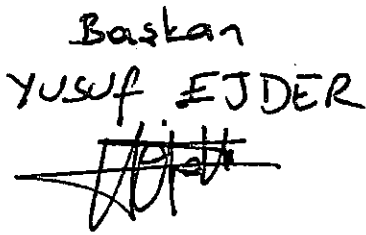 Başkan
Yusuf EJDER